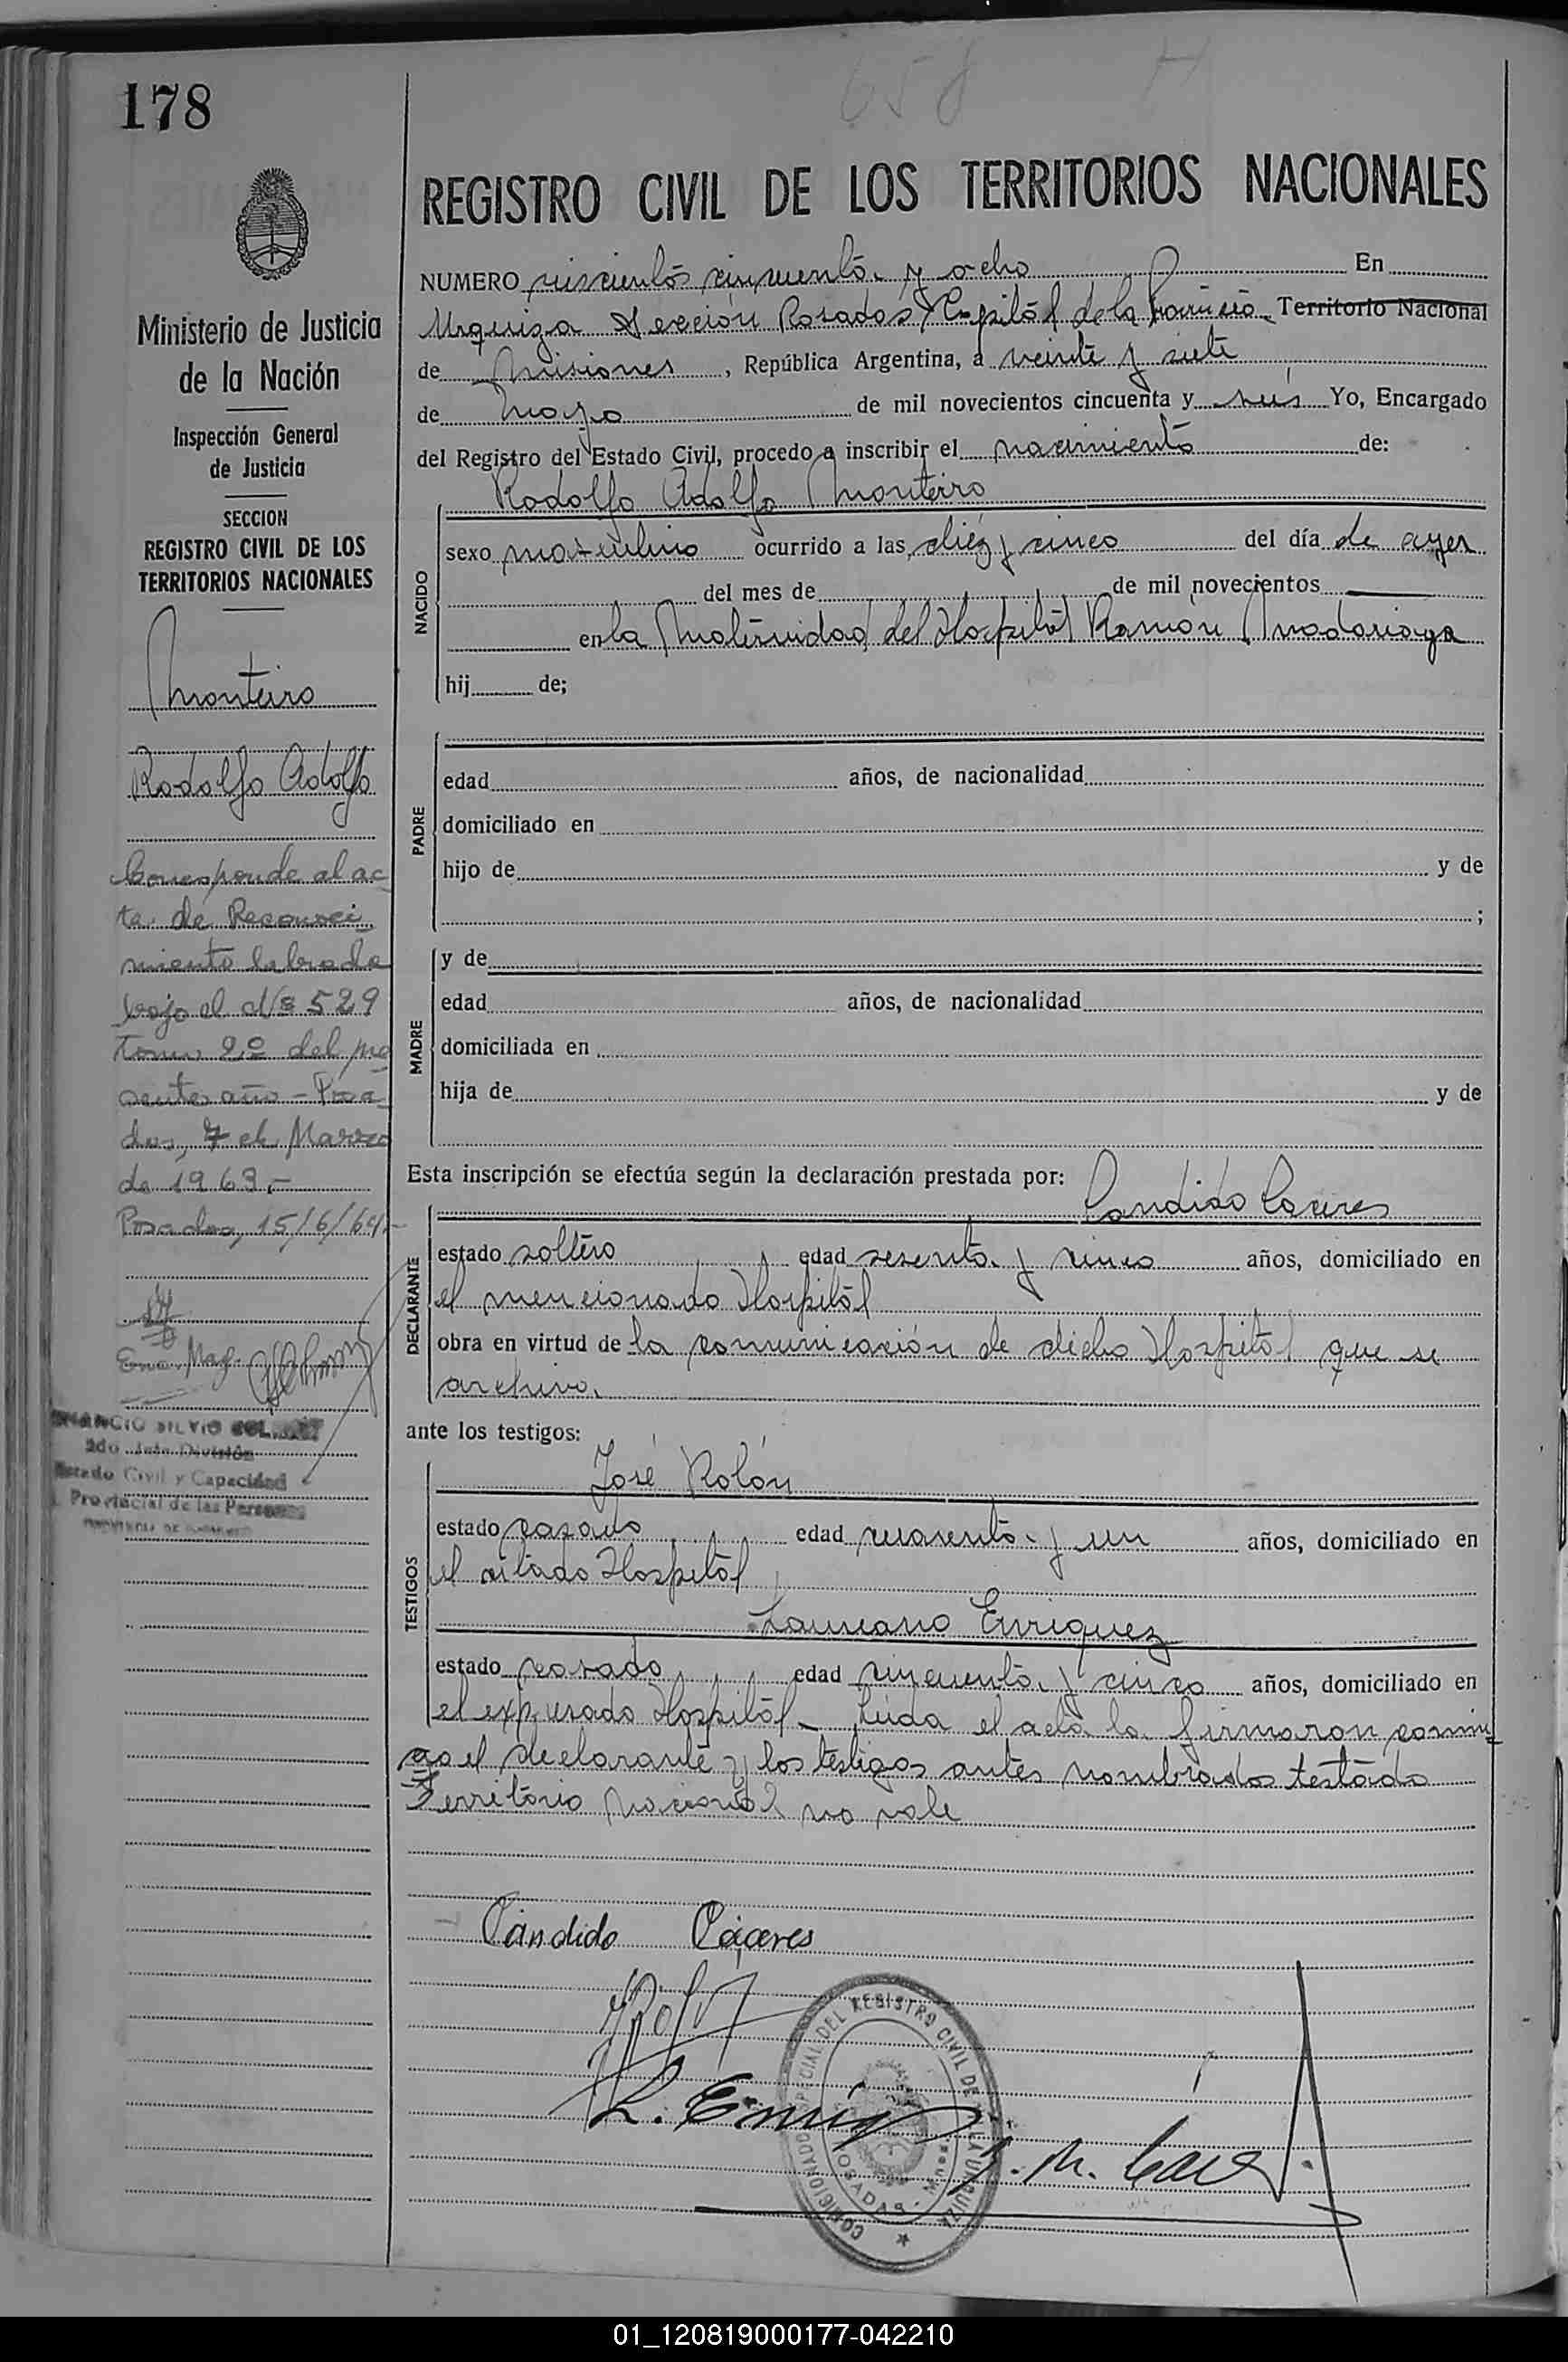 658 H
178
REGISTRO CIVIL DE LOS TERRITORIOS NACIONALES
Ministerio de Justicia
de la Nación
Inspección General
de Justicia
SECCION
REGISTRO CIVIL DE LOS
TERRITORIOS NACIONALES
Monteiro
Rodolfo Adolfo
Corresponde al ac
ta de Reconoci
miento labrada
bajo el Nº 529
Tomo 2º del pre
sente año - Posa
das, 7 de Marzo
de 1963.-
Posadas, 15/6/64.-
2do. Jefe División
Estado Civil y Capacidad
Provincial de las Personas
NUMERO seiscientos cincuenta y ocho En
Urquiza Sección Posadas Capital de la Provincia Territorio Nacional
de Misiones, República Argentina, a veinte y siete
de Mayo de mil novecientos cincuenta y seis Yo, Encargado
del Registro del Estado Civil, procedo a inscribir el nacimiento de:
Rodolfo Adolfo Monteiro
NACIDO
sexo masculino ocurrido a las diez y cinco del día de ayer
del mes de de mil novecientos
en la Maternidad del Hospital Ramón Madariaga
hij de;
PADRE
edad años, de nacionalidad
domiciliado en
hijo de y de
;
MADRE
y de
edad años, de nacionalidad
domiciliada en
hija de y de
Esta inscripción se efectúa según la declaración prestada por:
Candido Caceres
DECLARANTE
estado soltero edad sesenta y cinco años, domiciliado en
el mencionado Hospital
obra en virtud de la comunicación de dicho Hospital que se
archiva.
ante los testigos:
José Rolón
TESTIGOS
estado casado edad cuarenta y un años, domiciliado en
el citado Hospital
Laureano Enriquez
estado casado edad cincuenta y cinco años, domiciliado en
el expresado Hospital - Leida el acta la firmaron conmi
go el declarante y los testigos antes nombrados testado
Territorio Nacional no vale
Cándido Cáceres
L. Enriq
COMISIONADO ESPECIAL DEL REGISTRO CIVIL DE LA URQUIZA
POSADAS - Mnes.
01_120819000177-042210